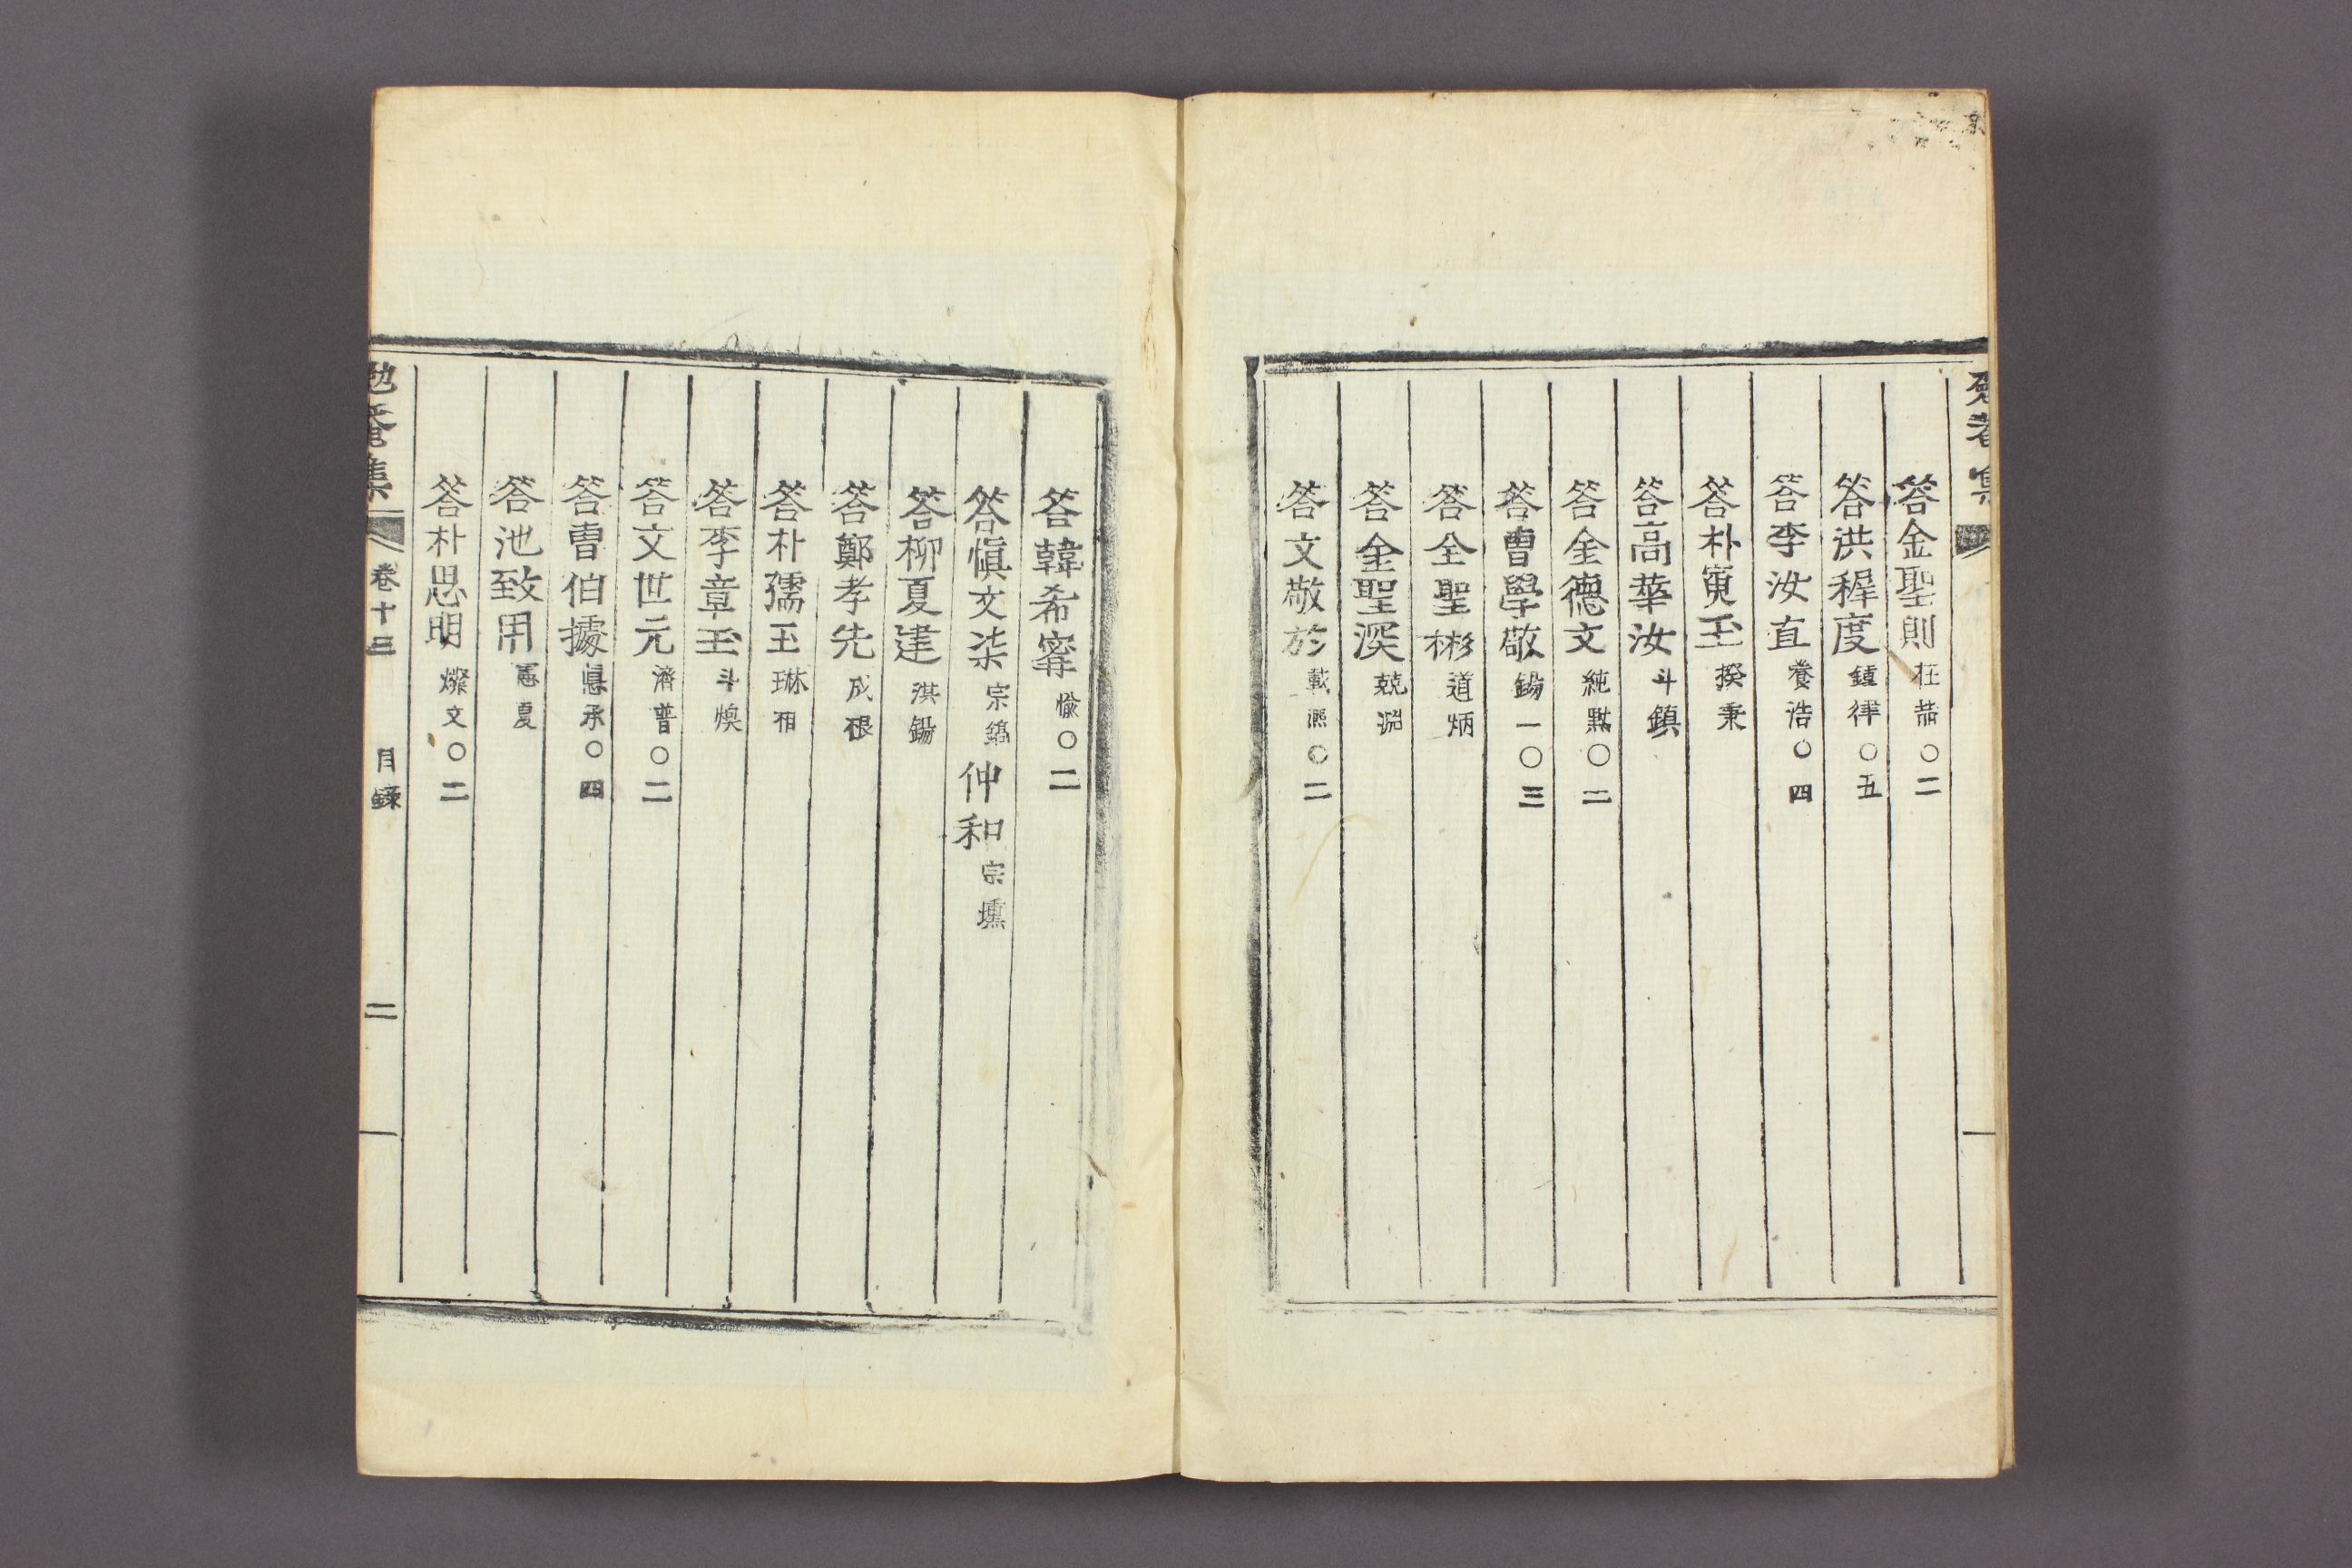 答金聖則 在喆 ○二
答洪穉度 鍾律 ○五
答李汝直 養浩 ○四
答朴寅玉 揆秉
答高華汝 斗鎮
答金德文 純默 ○二
答曹學敬 錫一 ○三
答全聖彬 道炳
答金聖深 兢淵
答文敬於 載熙 ○二
答韓希甯 愉 ○二
答愼文柒 宗鎬 仲和 宗壎
答柳夏建 淇錫
答鄭孝先 成根
答朴孺玉 琳相
答李章玉 斗煥
答文世元 濟普 ○二
答曹伯據 悳承 ○四
答池致用 憲夏
答朴思明 燦文 ○二
勉菴集 卷十三 目錄 二